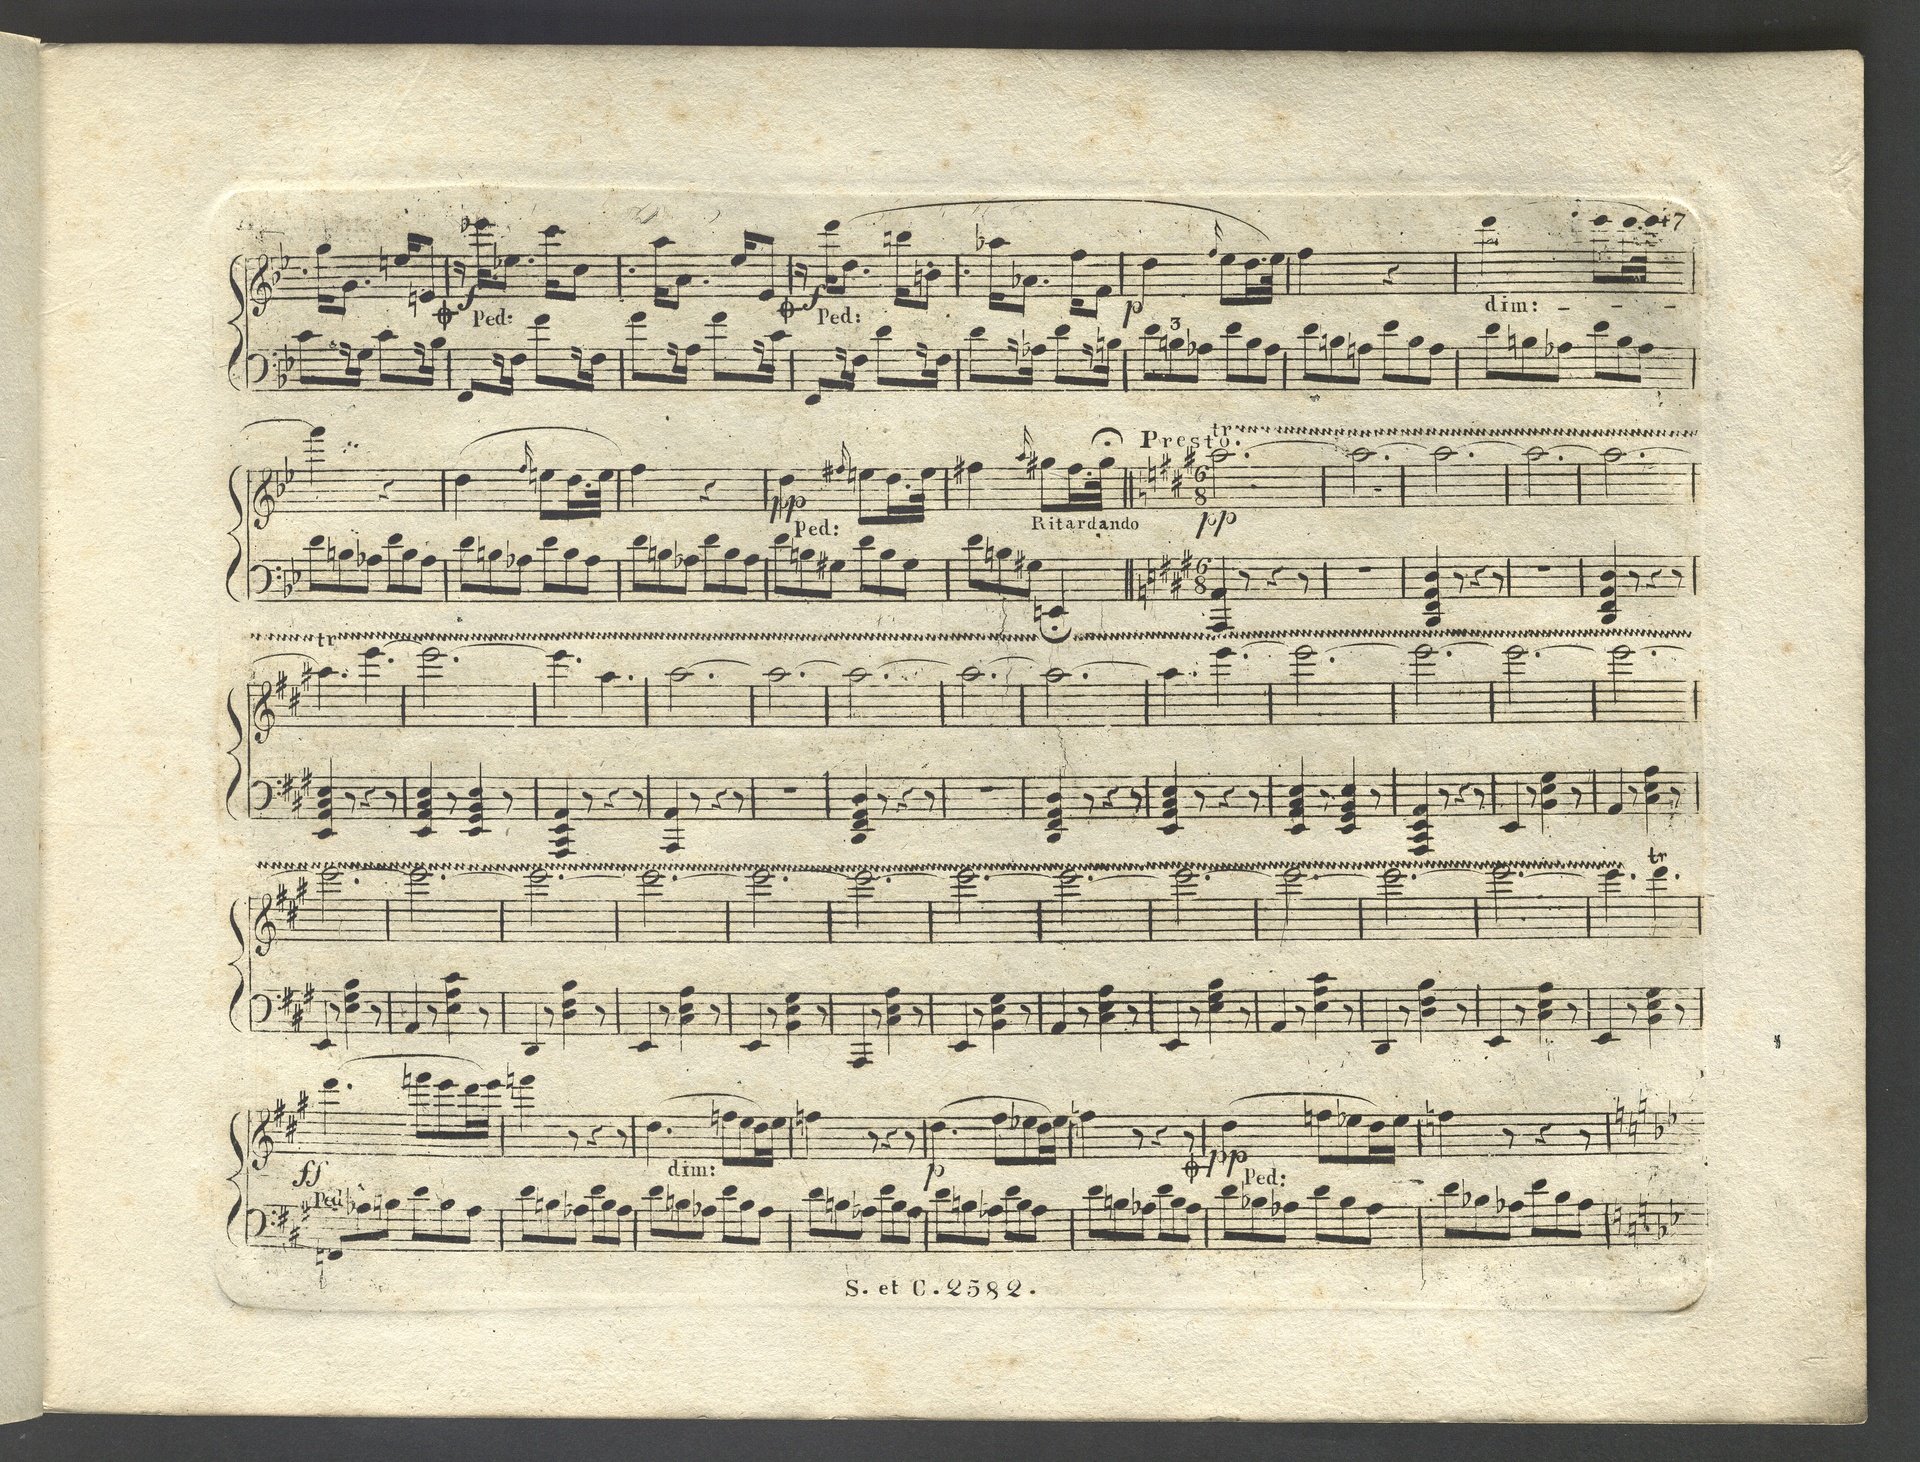 47
Ped: Ped: dim:
p
3
tr
Presto.
pp Ped: Ritardando pp
6 8
6 8
tr
tr
ff Ped dim: p pp Ped:
S. et C. 2582.